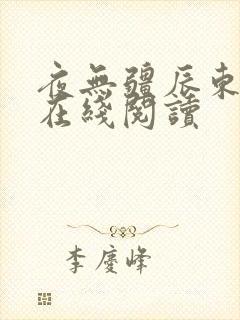 夜無疆辰東
在綫閱讀
李慶峰